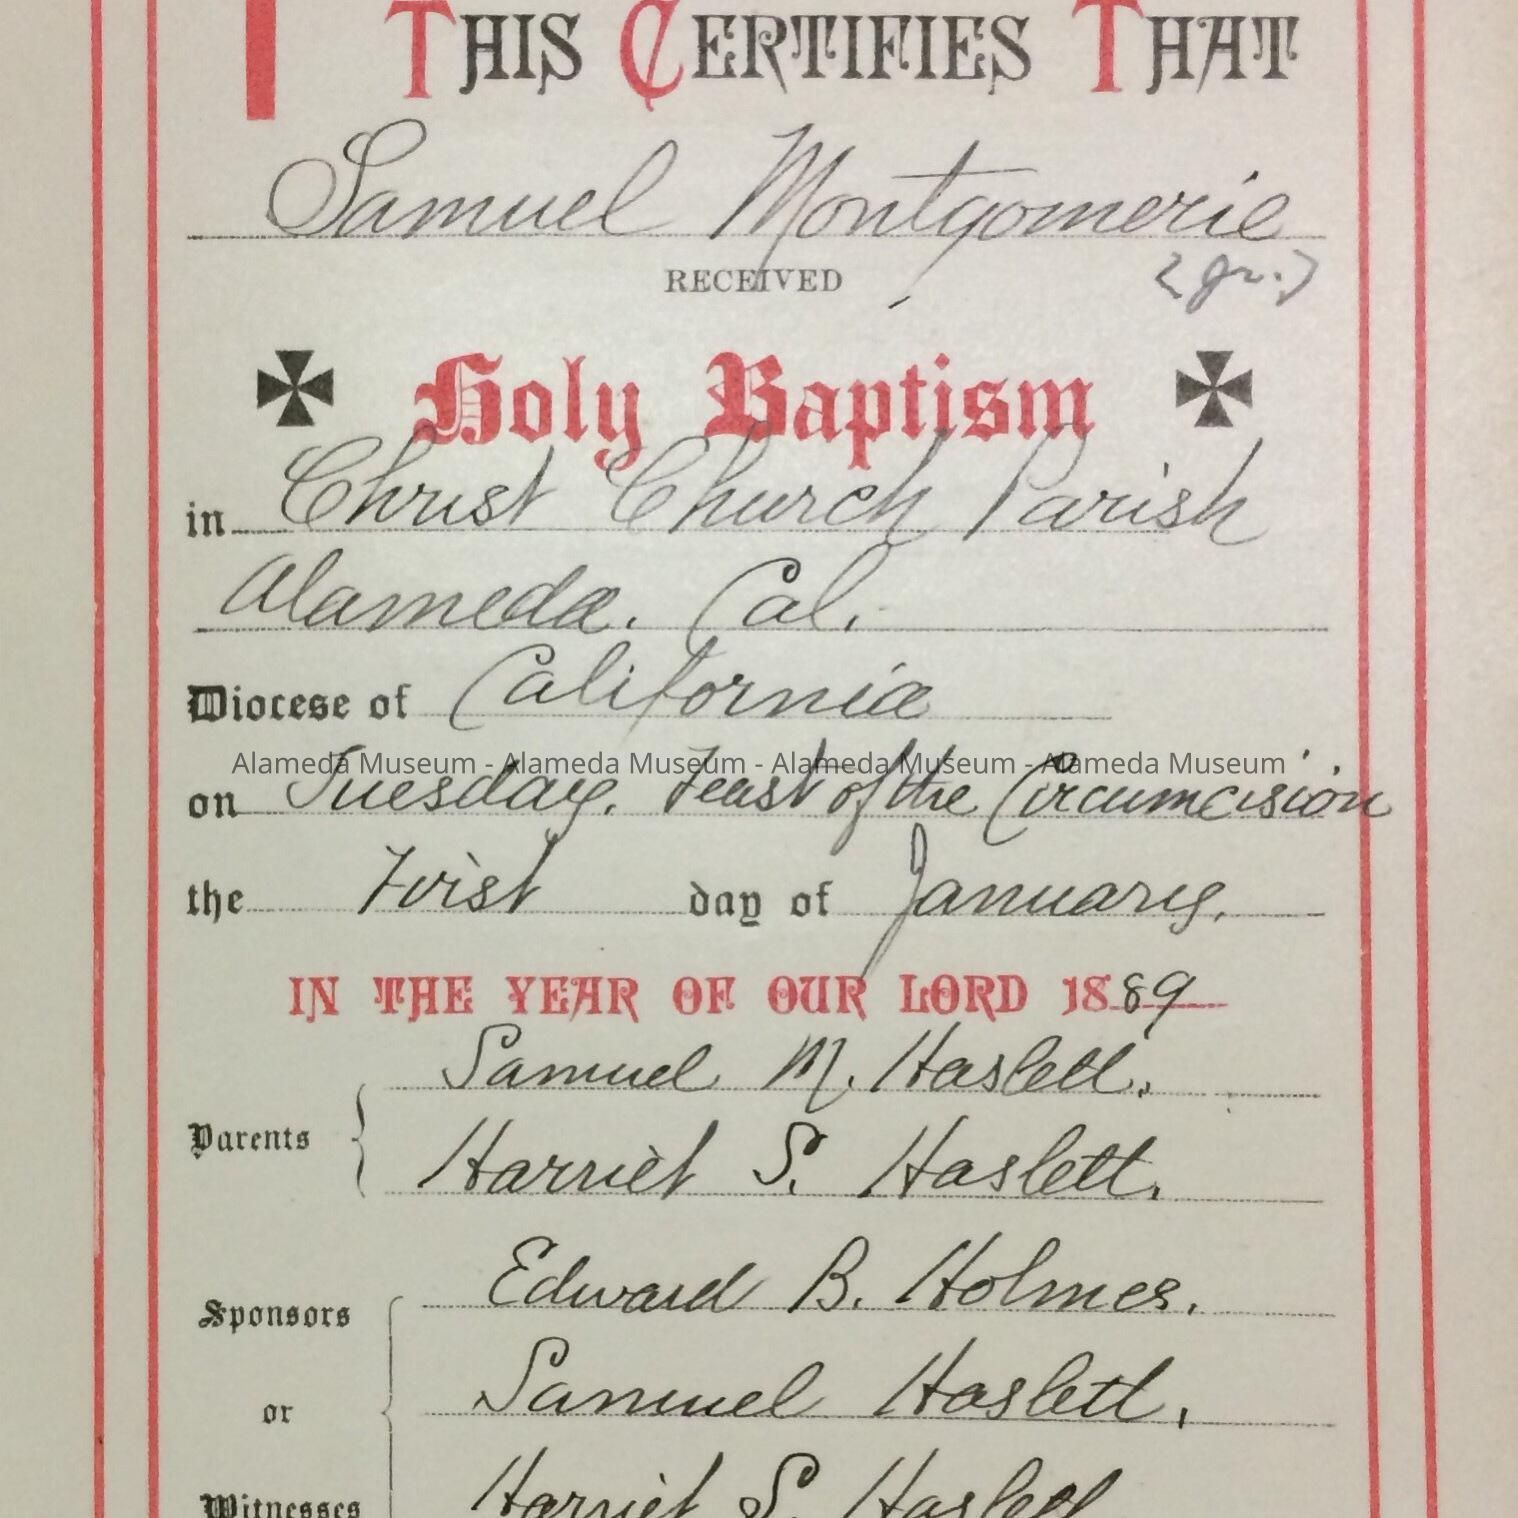 THIS CERTIFIES THAT
Samuel Montgomerie
RECEIVED
(Jr.)
Holy Baptism
in Christ Church Parish
Alameda. Cal.
Diocese of California
Alameda Museum - Alameda Museum - Alameda Museum - Alameda Museum
on Tuesday, Feast of the Circumcision
the First day of January,
IN THE YEAR OF OUR LORD 1889
Samuel M. Haslett.
Parents
Harriet S. Haslett.
Edward B. Holmes.
Sponsors
Samuel Haslett.
or
Harriet S. Haslett
Witnesses